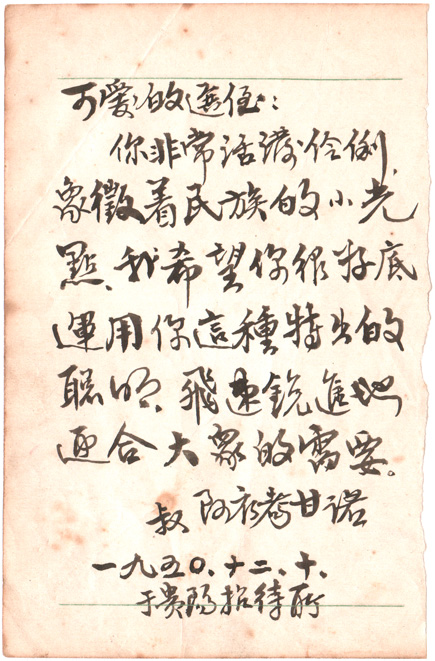 可愛的侄：
你非常活潑伶俐，
象徵着民族的小光
點、我希望你很好底
運用你這種特出的
聰明、飛速銳進地
合大眾的需要。
叔 阿甘诺
一九五〇.十二.十.
于贵陽招待所